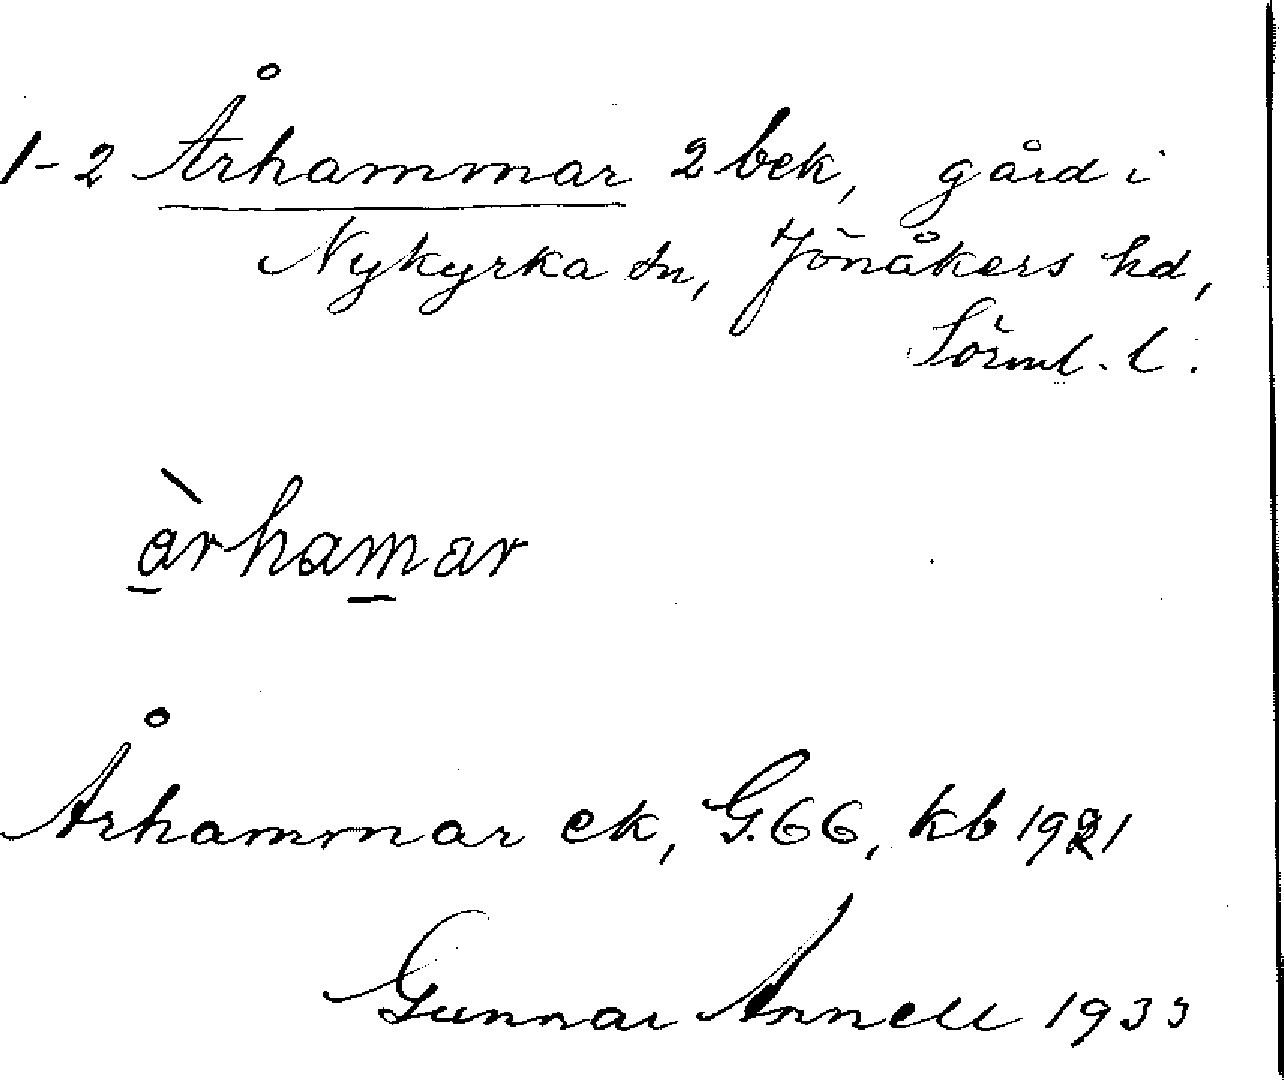 1-2 Århammar 2 bek, gård i
Nykyrka sn, Jönåkers hd,
Sörml. l.
àrhamar
Århammar ek, G.66, kb 1921
Gunnar Annell 1933